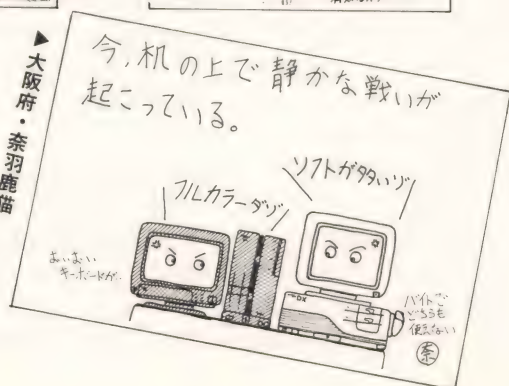 ▶大阪府・奈羽鹿猫
今,机の上で静かな戦いが
起こっている。
フルカラーダゾ
ソフトが多いゾ
おいおい
キーボードが…
DX
バイトで
どちらも
使えない
奈